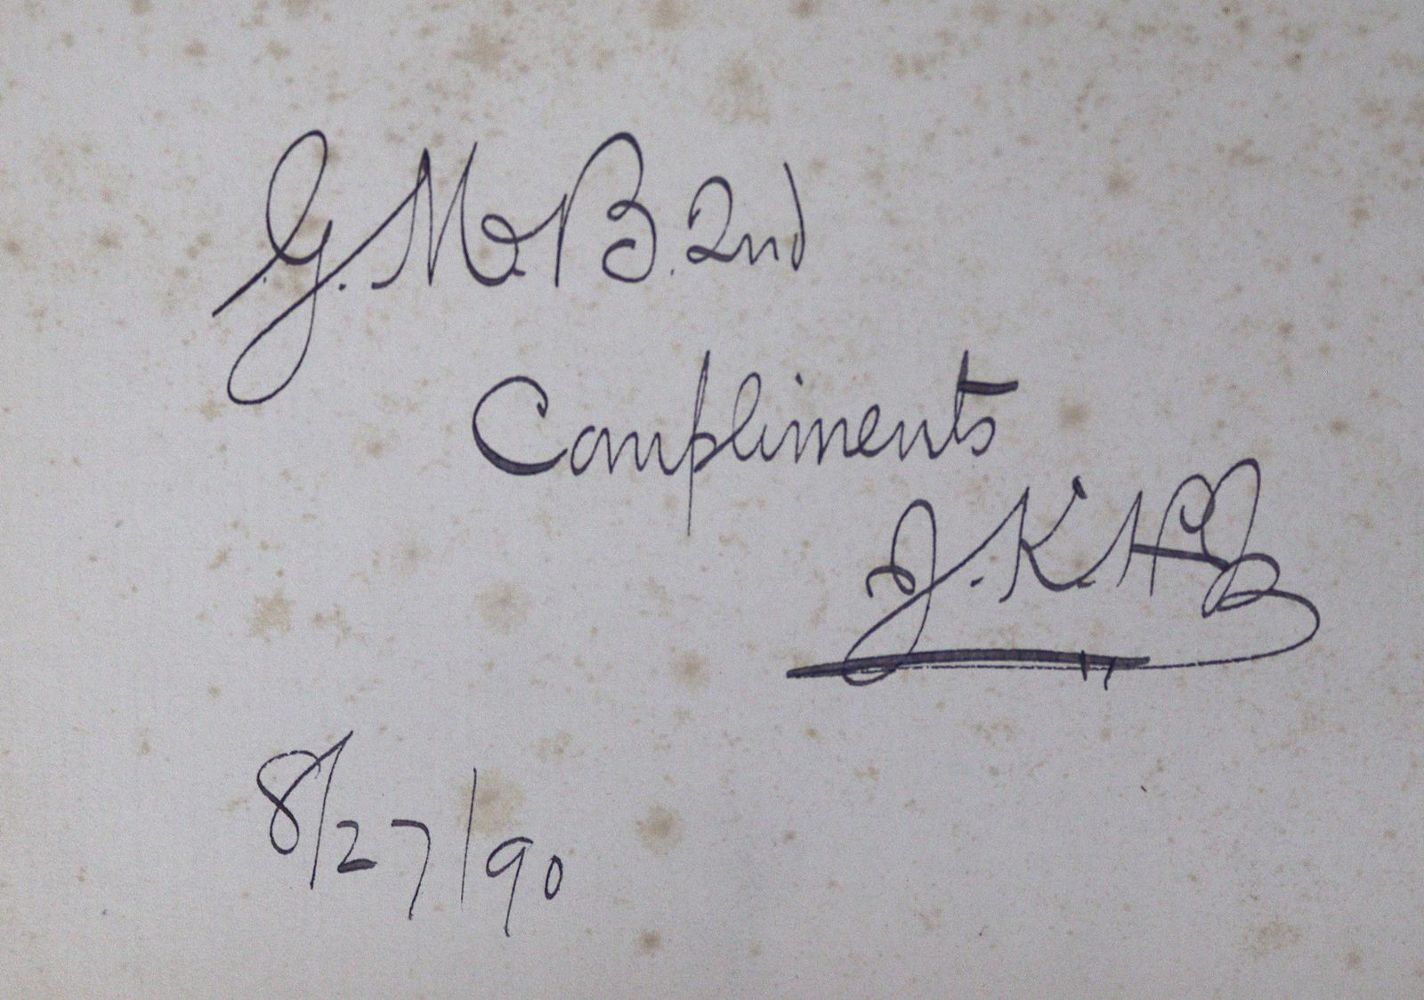 G. M. B. 2nd
Compliments
J. K. H.
8/27/90